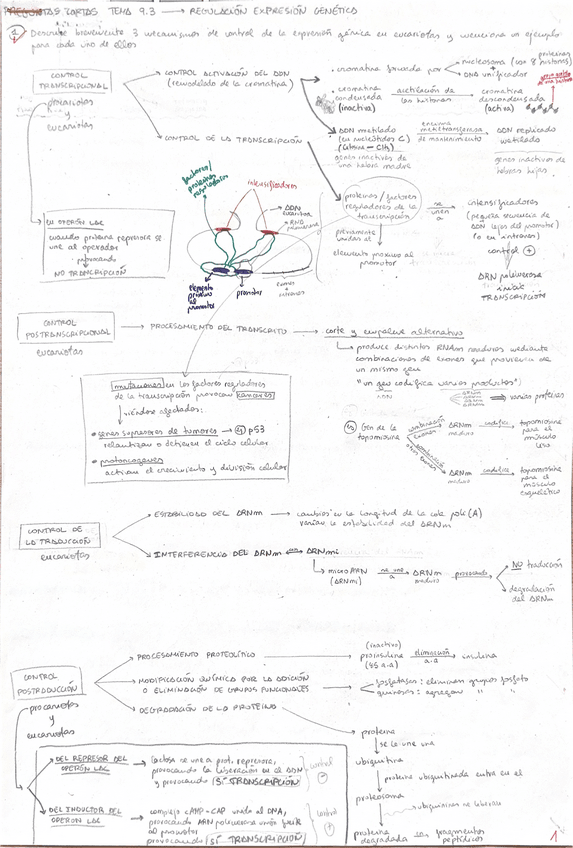 PREGUNTAS CORTAS TEMA 9.3 → REGULACIÓN EXPRESIÓN GENÉTICA
1 Describe brevemente 3 mecanismos de control de la expresión génica en eucariotas y menciona un ejemplo
para cada uno de ellos
CONTROL
TRANSCRIPCIONAL
procariotas
y
eucariotas
CONTROL ACTIVACIÓN DEL ADN
(remodelado de la cromatina)
cromatina formada por
nucleosoma (ADN 8 proteínas histonas)
ADN unificador
cromatina
condensada
(inactiva)
acetilación de
las histonas
cromatina
descondensada
(activa)
CONTROL DE LA TRANSCRIPCIÓN
ADN metilado
(en nucleótidos C)
(Citosina - CH3)
genes inactivos de
una hebra madre
enzima
metiltransferasa
de mantenimiento
ADN replicado
metilado
genes inactivos de
hebras hijas
factores/
proteínas
reguladoras
intensificadores
ADN
eucariota
promotor
elemento
próximo
al
promotor
exones
+
intrones
proteínas/factores
reguladores de la
transcripción
previamente
unidas al
elemento próximo al
promotor
se
unen
a
intensificadores
(pequeña secuencia de
ADN lejos del promotor)
(o en intrones)
control +
ARN polimerasa
inicia
TRANSCRIPCIÓN
EN OPERÓN LAC
cuando proteína represora se
une al operador
NO TRANCRIPCIÓN
CONTROL
POSTRANSCRIPCIONAL
eucariotas
PROCESAMIENTO DEL TRANSCRITO
corte y empalme alternativo
produce distintos RNAm maduros mediante
combinaciones de exones que provienen de
un mismo gen
"un gen codifica varios productos")
ARNm
ARNm
ARNm
varias proteínas
mutaciones en los factores reguladores
de la transcripción provocan cánceres
viéndose afectados:
• genes supresores de tumores → ej p53
relantizan o detienen el ciclo celular
• protooncogenes
activan el crecimiento y división celular
ej Gen de la
tropomiosina
combinación
exones
ARNm
maduro
codifica
tropomiosina
para el
músculo
liso
combinación
otros exones
ARNm
maduro
codifica
tropomiosina
para el
músculo
esquelético
CONTROL DE
LA TRADUCCIÓN
eucariotas
ESTABILIDAD DEL ARNm
cambios en la longitud de la cola poli(A)
varían la estabilidad del ARNm
INTERFERENCIA DEL ARNm
ARNmi
micro ARN
(ARNmi)
se une
a
ARNm
maduro
provocando
NO traducción
degradación
del ARNm
CONTROL
POSTRADUCCIÓN
procariotas
y
eucariotas
PROCESAMIENTO PROTEOLÍTICO
(inactivo)
proinsulina
eliminación
a-a
insulina
MODIFICACIÓN QUÍMICA POR LA ADICIÓN
O ELIMINACIÓN DE GRUPOS FUNCIONALES
fosfatasas: eliminan grupos fosfato
quinasas: agregan " "
DEGRADACIÓN DE LA PROTEÍNA
proteína
se le une una
ubiquitina
proteína ubiquitinada entra en el
proteosoma
ubiquitinas se liberan
proteína
degradada
fragmentos
peptídicos
DEL REPRESOR DEL
OPERÓN LAC
lactosa se une a prot. represora,
provocando la liberación en el ADN
y provocando SÍ TRANSCRIPCIÓN
control
-
DEL INDUCTOR DEL
OPERÓN LAC
complejo cAMP-CAP unido al DNA,
provocando ARN polimerasa unirse
al promotor
provocando SÍ TRANSCRIPCIÓN
control
+
1